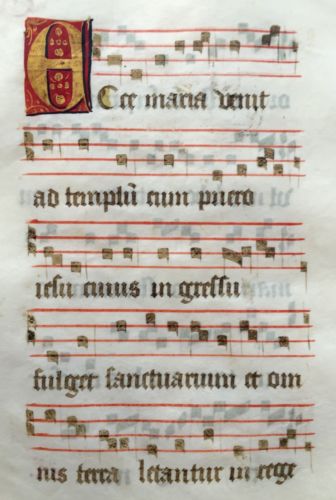 Ecce maria venit
ad templū cum puero
iesu cuius in gressu
fulget sanctuarium et om
nis terra letantur in rege